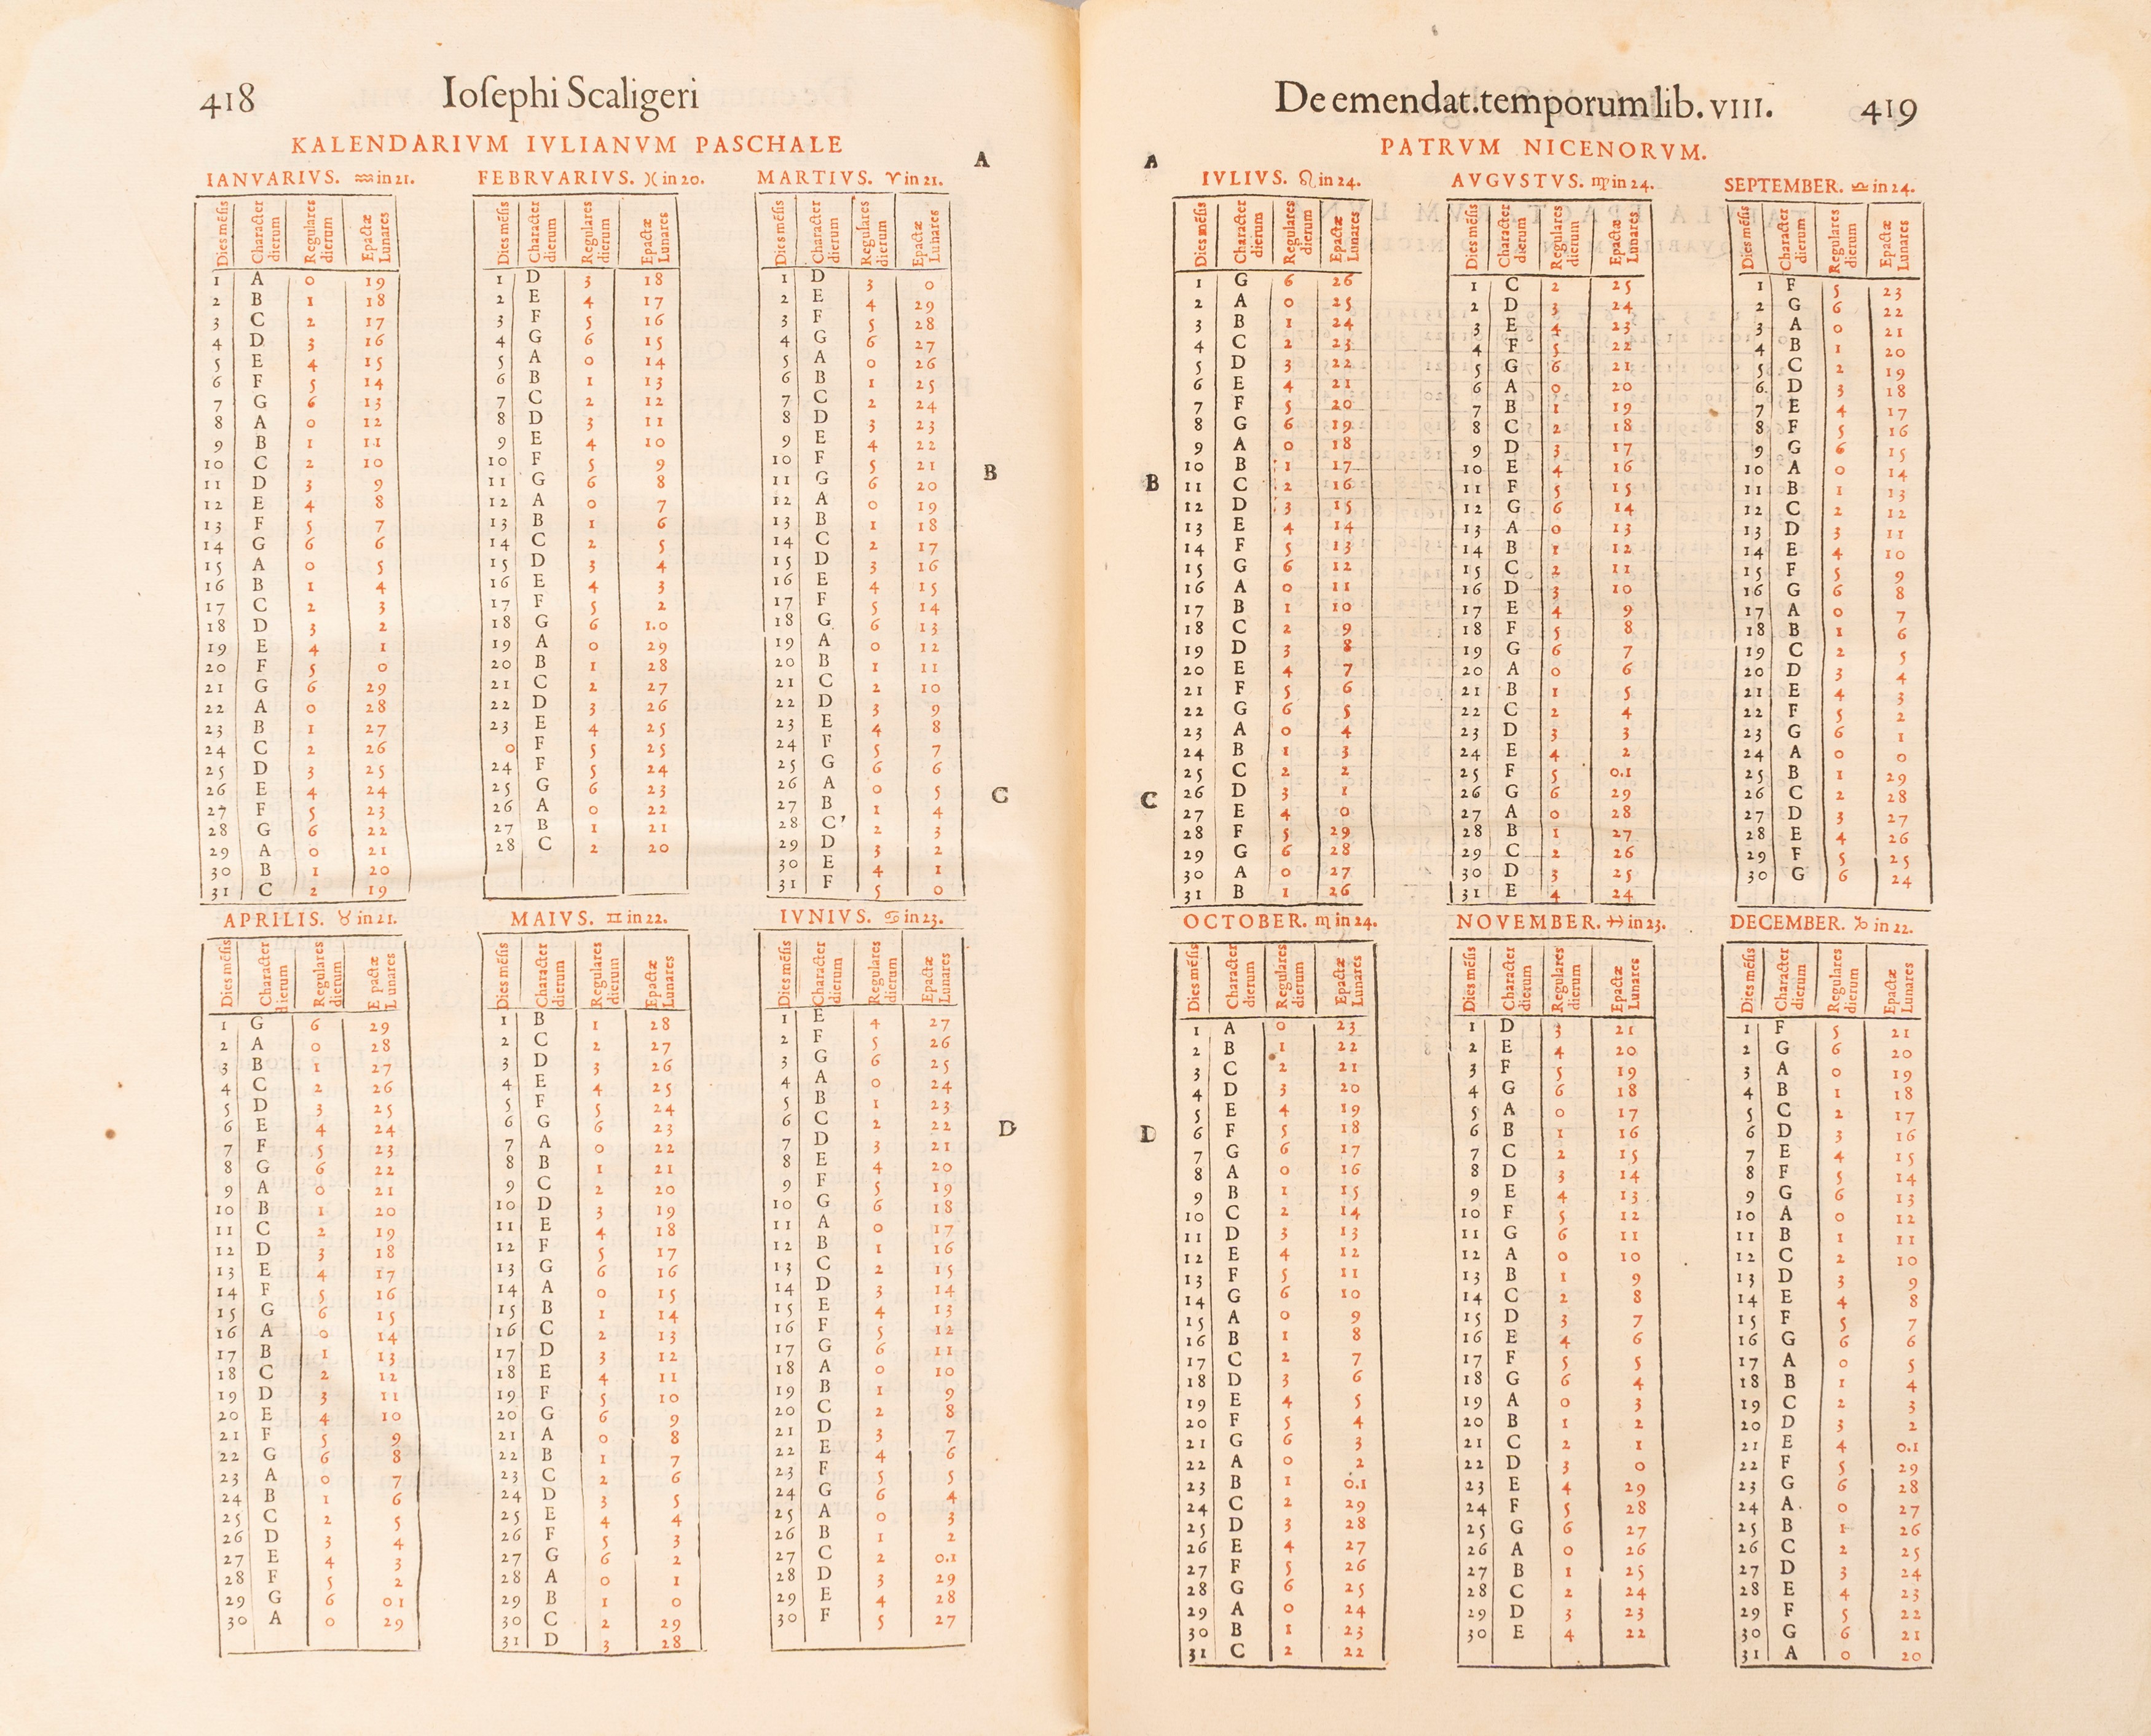 418 Ioſephi Scaligeri
KALENDARIVM IVLIANVM PASCHALE
A
IANVARIVS. ♒ in 21.
Dies mēſis Character dierum Regulares dierum Epactæ Lunares
1 A 0 19
2 B 1 18
3 C 2 17
4 D 3 16
5 E 4 15
6 F 5 14
7 G 6 13
8 A 0 12
9 B 1 11
10 C 2 10
11 D 3 9
12 E 4 8
13 F 5 7
14 G 6 6
15 A 0 5
16 B 1 4
17 C 2 3
18 D 3 2
19 E 4 1
20 F 5 0
21 G 6 29
22 A 0 28
23 B 1 27
24 C 2 26
25 D 3 25
26 E 4 24
27 F 5 23
28 G 6 22
29 A 0 21
30 B 1 20
31 C 2 19
FEBRVARIVS. ♓ in 20.
Dies mēſis Character dierum Regulares dierum Epactæ Lunares
1 D 3 18
2 E 4 17
3 F 5 16
4 G 6 15
5 A 0 14
6 B 1 13
7 C 2 12
8 D 3 11
9 E 4 10
10 F 5 9
11 G 6 8
12 A 0 7
13 B 1 6
14 C 2 5
15 D 3 4
16 E 4 3
17 F 5 2
18 G 6 1.0
19 A 0 29
20 B 1 28
21 C 2 27
22 D 3 26
23 E 4 25
0 F 5 25
24 F 5 24
25 G 6 23
26 A 0 22
27 B 1 21
28 C 2 20
MARTIVS. ♈ in 21.
Dies mēſis Character dierum Regulares dierum Epactæ Lunares
1 D 3 0
2 E 4 29
3 F 5 28
4 G 6 27
5 A 0 26
6 B 1 25
7 C 2 24
8 D 3 23
9 E 4 22
10 F 5 21
11 G 6 20
12 A 0 19
13 B 1 18
14 C 2 17
15 D 3 16
16 E 4 15
17 F 5 14
18 G 6 13
19 A 0 12
20 B 1 11
21 C 2 10
22 D 3 9
23 E 4 8
24 F 5 7
25 G 6 6
26 A 0 5
27 B 1 4
28 C 2 3
29 D 3 2
30 E 4 1
31 F 5 0
B
C
APRILIS. ♉ in 21.
Dies mēſis Character dierum Regulares dierum Epactæ Lunares
1 G 6 29
2 A 0 28
3 B 1 27
4 C 2 26
5 D 3 25
6 E 4 24
7 F 5 23
8 G 6 22
9 A 0 21
10 B 1 20
11 C 2 19
12 D 3 18
13 E 4 17
14 F 5 16
15 G 6 15
16 A 0 14
17 B 1 13
18 C 2 12
19 D 3 11
20 E 4 10
21 F 5 9
22 G 6 8
23 A 0 7
24 B 1 6
25 C 2 5
26 D 3 4
27 E 4 3
28 F 5 2
29 G 6 01
30 A 0 29
MAIVS. ♊ in 22.
Dies mēſis Character dierum Regulares dierum Epactæ Lunares
1 B 1 28
2 C 2 27
3 D 3 26
4 E 4 25
5 F 5 24
6 G 6 23
7 A 0 22
8 B 1 21
9 C 2 20
10 D 3 19
11 E 4 18
12 F 5 17
13 G 6 16
14 A 0 15
15 B 1 14
16 C 2 13
17 D 3 12
18 E 4 11
19 F 5 10
20 G 6 9
21 A 0 8
22 B 1 7
23 C 2 6
24 D 3 5
25 E 4 4
26 F 5 3
27 G 6 2
28 A 0 1
29 B 1 0
30 C 2 29
31 D 3 28
IVNIVS. ♋ in 23.
Dies mēſis Character dierum Regulares dierum Epactæ Lunares
1 E 4 27
2 F 5 26
3 G 6 25
4 A 0 24
5 B 1 23
6 C 2 22
7 D 3 21
8 E 4 20
9 F 5 19
10 G 6 18
11 A 0 17
12 B 1 16
13 C 2 15
14 D 3 14
15 E 4 13
16 F 5 12
17 G 6 11
18 A 0 10
19 B 1 9
20 C 2 8
21 D 3 7
22 E 4 6
23 F 5 5
24 G 6 4
25 A 0 3
26 B 1 2
27 C 2 0.1
28 D 3 29
29 E 4 28
30 F 5 27
D
De emendat. temporum lib. VIII. 419
PATRVM NICENORVM.
A
IVLIVS. ♌ in 24.
Dies mēſis Character dierum Regulares dierum Epactæ Lunares
1 G 6 26
2 A 0 25
3 B 1 24
4 C 2 23
5 D 3 22
6 E 4 21
7 F 5 20
8 G 6 19
9 A 0 18
10 B 1 17
11 C 2 16
12 D 3 15
13 E 4 14
14 F 5 13
15 G 6 12
16 A 0 11
17 B 1 10
18 C 2 9
19 D 3 8
20 E 4 7
21 F 5 6
22 G 6 5
23 A 0 4
24 B 1 3
25 C 2 2
26 D 3 1
27 E 4 0
28 F 5 29
29 G 6 28
30 A 0 27
31 B 1 26
AVGVSTVS. ♍ in 24.
Dies mēſis Character dierum Regulares dierum Epactæ Lunares
1 C 2 25
2 D 3 24
3 E 4 23
4 F 5 22
5 G 6 21
6 A 0 20
7 B 1 19
8 C 2 18
9 D 3 17
10 E 4 16
11 F 5 15
12 G 6 14
13 A 0 13
14 B 1 12
15 C 2 11
16 D 3 10
17 E 4 9
18 F 5 8
19 G 6 7
20 A 0 6
21 B 1 5
22 C 2 4
23 D 3 3
24 E 4 2
25 F 5 0.1
26 G 6 29
27 A 0 28
28 B 1 27
29 C 2 26
30 D 3 25
31 E 4 24
SEPTEMBER. ♎ in 24.
Dies mēſis Character dierum Regulares dierum Epactæ Lunares
1 F 5 23
2 G 6 22
3 A 0 21
4 B 1 20
5 C 2 19
6 D 3 18
7 E 4 17
8 F 5 16
9 G 6 15
10 A 0 14
11 B 1 13
12 C 2 12
13 D 3 11
14 E 4 10
15 F 5 9
16 G 6 8
17 A 0 7
18 B 1 6
19 C 2 5
20 D 3 4
21 E 4 3
22 F 5 2
23 G 6 1
24 A 0 0
25 B 1 29
26 C 2 28
27 D 3 27
28 E 4 26
29 F 5 25
30 G 6 24
B
C
OCTOBER. ♏ in 24.
Dies mēſis Character dierum Regulares dierum Epactæ Lunares
1 A 0 23
2 B 1 22
3 C 2 21
4 D 3 20
5 E 4 19
6 F 5 18
7 G 6 17
8 A 0 16
9 B 1 15
10 C 2 14
11 D 3 13
12 E 4 12
13 F 5 11
14 G 6 10
15 A 0 9
16 B 1 8
17 C 2 7
18 D 3 6
19 E 4 5
20 F 5 4
21 G 6 3
22 A 0 2
23 B 1 0.1
24 C 2 29
25 D 3 28
26 E 4 27
27 F 5 26
28 G 6 25
29 A 0 24
30 B 1 23
31 C 2 22
NOVEMBER. ♐ in 23.
Dies mēſis Character dierum Regulares dierum Epactæ Lunares
1 D 3 21
2 E 4 20
3 F 5 19
4 G 6 18
5 A 0 17
6 B 1 16
7 C 2 15
8 D 3 14
9 E 4 13
10 F 5 12
11 G 6 11
12 A 0 10
13 B 1 9
14 C 2 8
15 D 3 7
16 E 4 6
17 F 5 5
18 G 6 4
19 A 0 3
20 B 1 2
21 C 2 1
22 D 3 0
23 E 4 29
24 F 5 28
25 G 6 27
26 A 0 26
27 B 1 25
28 C 2 24
29 D 3 23
30 E 4 22
DECEMBER. ♑ in 22.
Dies mēſis Character dierum Regulares dierum Epactæ Lunares
1 F 5 21
2 G 6 20
3 A 0 19
4 B 1 18
5 C 2 17
6 D 3 16
7 E 4 15
8 F 5 14
9 G 6 13
10 A 0 12
11 B 1 11
12 C 2 10
13 D 3 9
14 E 4 8
15 F 5 7
16 G 6 6
17 A 0 5
18 B 1 4
19 C 2 3
20 D 3 2
21 E 4 0.1
22 F 5 29
23 G 6 28
24 A 0 27
25 B 1 26
26 C 2 25
27 D 3 24
28 E 4 23
29 F 5 22
30 G 6 21
31 A 0 20
D